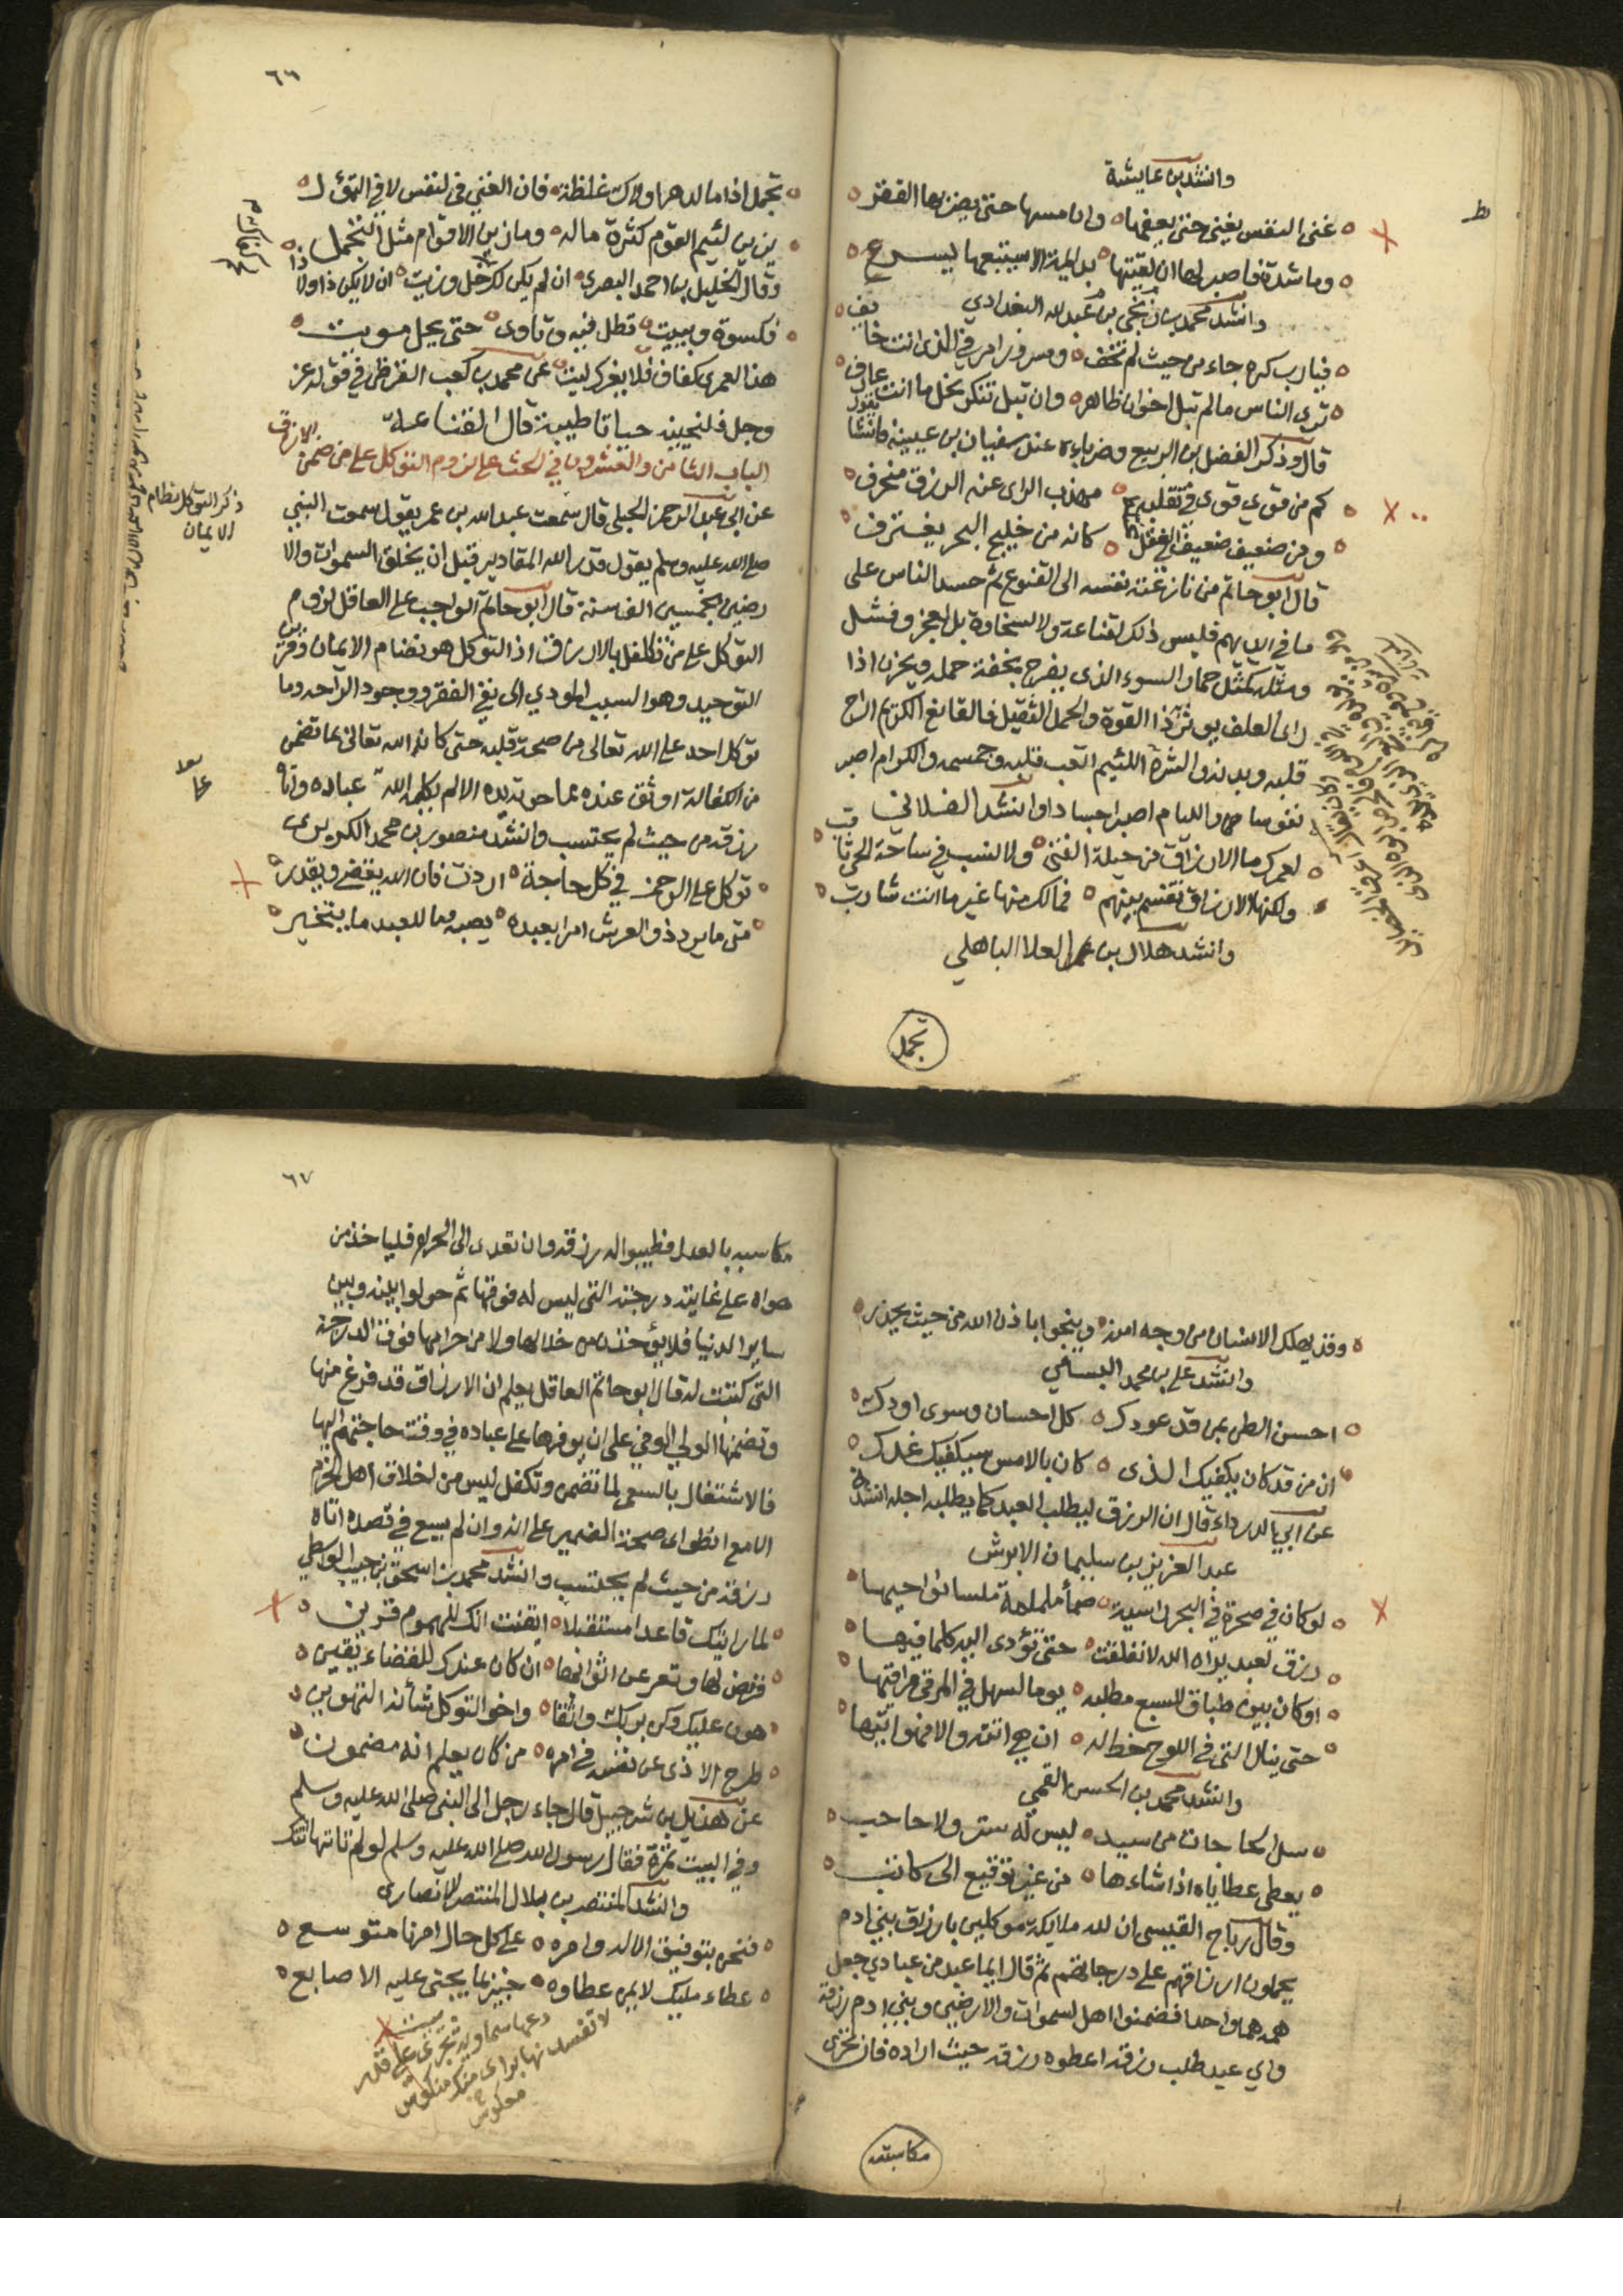 وانشد بن عايشة
غنى النفس يغنى حتى يعفها وان مسها حتى يضر بها الفقر
وما شدة فاصبر لها ان لقيتها بدايمة الا سيتبعها يسر
وانشد محمد بن بن عبد الله البغدادي
فيارب كره جاء من حيث لم تخف ومسرور امر في الذي انت خايف
ترى الناس مالم تبل اخوان ظاهر وان تبل تنكر بخل ما انت عارف
قال وذكر الفضل بن الربيع وضرباءه عند سفيان بن عيينة فانشا يقول
كم من قوي قوى في تقلبه مهذب الراى عنه الرزق منحرف
ومن ضعيف ضعيف العقل كانه من خليج البحر يغترف
قال ابو حاتم من نازعته نفسه الى القنوع ثم حسد الناس على
ما في ايديهم فليس ذلك لقناعة ولا لسخاوة بل لعجز وفشل
ومثله كمثل حمار السوء الذى يفرح بخفة حمله ويحزن اذا
راى العلف يوثر ذا القوة والحمل الثقيل فالقانع الكريم اراح
قلبه وبدنه والشره اللئيم اتعب قلبه وجسمه والكرام اصبر
نفوسا واللئام اصبر اجسادا وانشد
لعمرك ما الارزاق من حيلة الفتى ولا لسبب في ساحة الحي ثاقب
ولكنها الارزاق تقسم بينهم فمالك منها غير ما انت شارب
وانشد هلال بن العلا الباهلي
تجمل
٦٦
تجمل اذا ما الدهر اولاك غلظة فان الغنى في النفس لا في التمول
يزين لئيم القوم كثرة ماله وما زين الاقوام مثل التجمل
وقال الخليل بن احمد البصرى ان لم يكن لك خل وزيت ان لا يكن ذا ولا ذا
فكسوة وبييت تظل فيه وتاوى حتى يجل موت
هذا لعمرى كفاف فلا يغرك ليت عن محمد بن كعب القرظى في قوله عز
وجل فلنحيينه حياتا طيبة قال القناعة
الباب الثامن والعشرون في الحث على لزوم التوكل على من ضمن الارزاق
ذكر التوكل نظام الايمان
عن ابى عبد الرحمن الحبلى قال سمعت عبد الله بن عمر يقول سمعت النبي
صلى الله عليه وسلم يقول قدر الله المقادير قبل ان يخلق السموات والا
رضين بخمسين الف سنة قال ابو حاتم الواجب على العاقل لزوم
التوكل على من تكفل بالارزاق اذ التوكل هو نظام الايمان وقرين
التوحيد وهو السبب المودي الى نفي الفقر ووجود الراحه وما
توكل احد على الله تعالى من صحة قلبه حتى كان الله تعالى بما تضمن
من الكفالة اوثق عنده مما حوته يده الا لم يكله الله عباده واتاه
رزقه من حيث لم يحتسب وانشد منصور بن محمد الكريزى
توكل على الرحمن في كل حاجة اردت فان الله يقضي ويقدر
متى ما يرد ذو العرش امرا بعبده يصبه وما للعبد ما يتخير
وقد يهلك الانسان من وجه امنه وينجو باذن الله من حيث يحذر
وانشد علي بن محمد البسامي
احسن الظن بمن قد عودك كل احسان وسوى اودك
ان من قد كان يكفيك الذى كان بالامس سيكفيك غدك
عن ابى الدرداء قال ان الرزق ليطلب العبد كما يطلبه اجله انشدنا
عبد العزيز بن سليمان الابرش
لو كان في صخرة في البحر راسية صماء ململمة ملسا نواحيها
رزق لعبد يراه الله لانفلقت حتى تؤدى اليه كلما فيها
او كان بين طباق السبع مطلبه يوما لسهل في المرقى مراقيها
حتى ينال التى في اللوح خط له ان هي اتته والا فهو اتيها
وانشد محمد بن الحسن القمي
سل الحاجات من سيد ليس له ستر ولا حاجب
يعطى عطاياه اذا شاءها من غير توقيع الى كاتب
وقال رباح القيسى ان لله ملائكة موكلين بارزاق بني ادم
يحملون ارزاقهم على درجاتهم ثم قال ايما عبد من عبادي جعل
همه هما واحدا فضمنوا اهل السموات والارضين وبني ادم رزقه
واي عبد طلب رزقه اعطوه رزقه حيث اراده فان تحرى
مكاسبه
٦٧
مكاسبه بالعدل فطيبوا له رزقه وان تعدى الى الحرام فلياخذ من
هواه على غاية درجته التى ليس له فوقها ثم حولوا بينه وبين
ساير الدنيا فلا يؤخذن من حلالها ولا من حرامها فوق الدرجة
التى كتبت له قال ابو حاتم العاقل يعلم ان الارزاق قد فرغ منها
وتضمنها الولي الوفي على ان يوفرها على عباده في وقت حاجتهم اليها
فالاشتغال بالسعى لما تضمن وتكفل ليس من اخلاق اهل الحزم
الا مع انطواى صحة الضمير على انه وان لم يسع في قصده اتاه
رزقه من حيث لم يحتسب وانشد محمد بن اسحق بن حبيب الواسطي
لما رايتك قاعدا مستقبلا ايقنت انك للهموم قرين
فرفض لها وتعر عن اثوابها ان كان عندك للقضاء يقين
هون عليك وكن بربك واثقا واخو التوكل شأنه التهوين
طرح الاذى عن نفسه في امره من كان يعلم انه مضمون
عن هذيل بن شرحبيل قال جاء رجل الى النبى صلى الله عليه وسلم
وفي البيت تمرة فقال رسول الله صلى الله عليه وسلم لو لم تاتها اتتك
وانشد المنتصر بن بلال المنتصر الانصارى
فنحن بتوفيق الاله وامره على كل حال امرنا متوسع
عطاء مليك لا يمن عطاوه خبير بما يحنى عليه الاصابع